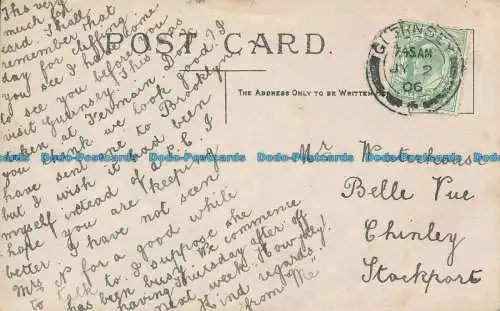 POST CARD.
THE ADDRESS ONLY TO BE WRITTEN
GUERNSEY
7.45AM
JY 2
06
Thanks very
much for
card. I shall
remember that
day for differing
you see I had some
to see you before you
visit Guernsey. This was
taken at Fermain. Do
you think we took good? I
have sent one to Brooklyn
but I wish it had been
myself instead of E.C. I
hope you are keeping
better. I have not seen
Mrs N for a good while
to talk to. I suppose she
has been busy. We commence
having Thursday after off
next week. How jolly!
Kind regards,
from "Me"
Mr Waterhouse
Belle Vue
Chinley
Stockport
Dodo-Postcards